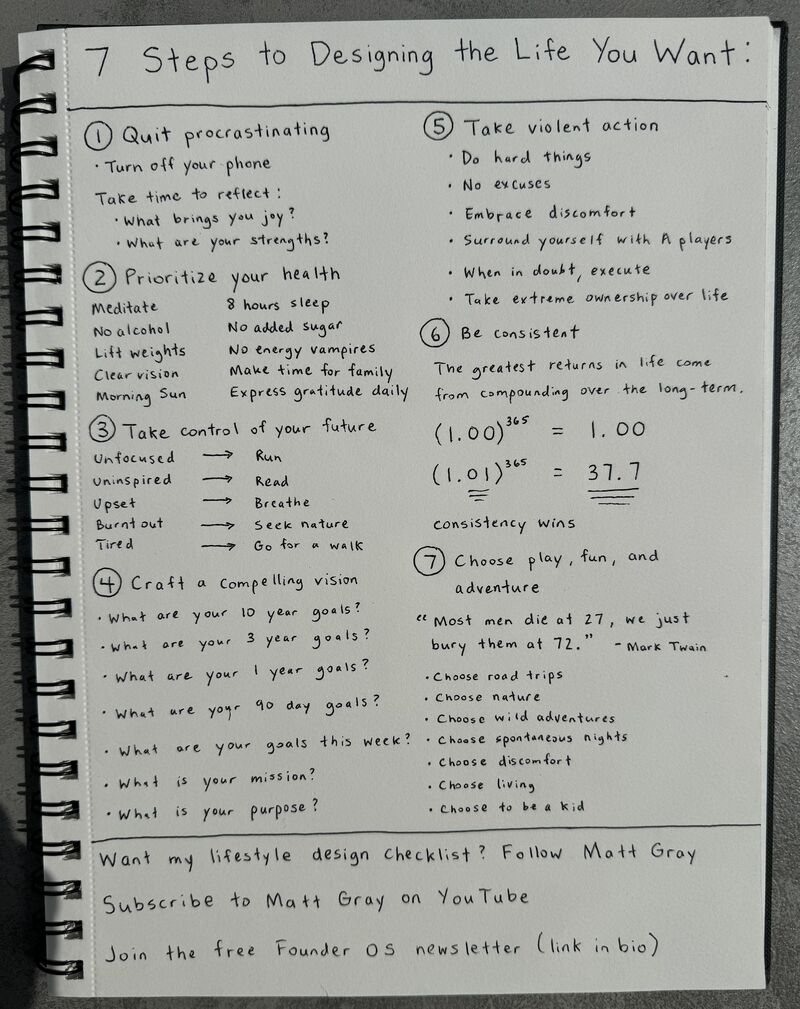 7 Steps to Designing the Life You Want:
① Quit procrastinating
• Turn off your phone
Take time to reflect:
• What brings you joy?
• What are your strengths?
② Prioritize your health
Meditate 8 hours sleep
No alcohol No added sugar
Lift weights No energy vampires
Clear vision Make time for family
Morning Sun Express gratitude daily
③ Take control of your future
Unfocused → Run
Uninspired → Read
Upset → Breathe
Burnt out → Seek nature
Tired → Go for a walk
④ Craft a compelling vision
• What are your 10 year goals?
• What are your 3 year goals?
• What are your 1 year goals?
• What are your 90 day goals?
• What are your goals this week?
• What is your mission?
• What is your purpose?
⑤ Take violent action
• Do hard things
• No excuses
• Embrace discomfort
• Surround yourself with A players
• When in doubt, execute
• Take extreme ownership over life
⑥ Be consistent
The greatest returns in life come
from compounding over the long-term.
(1.00)³⁶⁵ = 1.00
(1.01)³⁶⁵ = 37.7
consistency wins
⑦ Choose play, fun, and
adventure
"Most men die at 27, we just
bury them at 72." - Mark Twain
• Choose road trips
• Choose nature
• Choose wild adventures
• Choose spontaneous nights
• Choose discomfort
• Choose living
• Choose to be a kid
Want my lifestyle design checklist? Follow Matt Gray
Subscribe to Matt Gray on YouTube
Join the free Founder OS newsletter (link in bio)